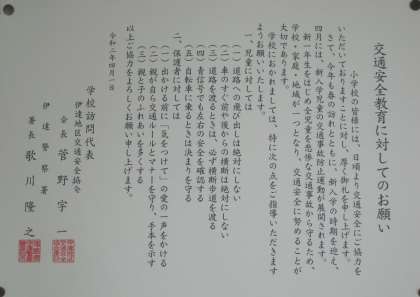 交通安全教育に対してのお願い
小学校の皆様には、日頃より交通安全にご協力を
いただいておりますことに対し、厚く御礼を申し上げます。
さて、今年も春の訪れとともに、新入学の時期を迎え、
四月には、新入学児童の交通事故防止運動が展開されます。
新一年生をはじめ全児童を悲惨な交通事故から守るため、
学校・家庭・地域が一つとなり、交通安全に努めることが
大切であります。
学校におかれましては、特に次の点をご指導いただきます
ようお願いいたします。
一、児童に対しては
(一) 道路への飛び出しは絶対にしない
(二) 車のすぐ前や後からの横断は絶対にしない
(三) 道路を渡るときは、必ず横断歩道を渡る
(四) 青信号でも左右の安全を確認する
(五) 自転車に乗るときは決まりを守る
二、保護者に対しては
(一) 出かける前に「気をつけて」の愛の一声をかける
(二) 親が自ら交通ルールとマナーを守り、手本を示す
(三) 親と子のふれあいを多くする
以上ご協力をよろしくお願い申し上げます。
令和二年四月一日
学校訪問代表
伊達地区交通安全協会
会長 菅野宇一
伊達警察署
署長 歌川隆之